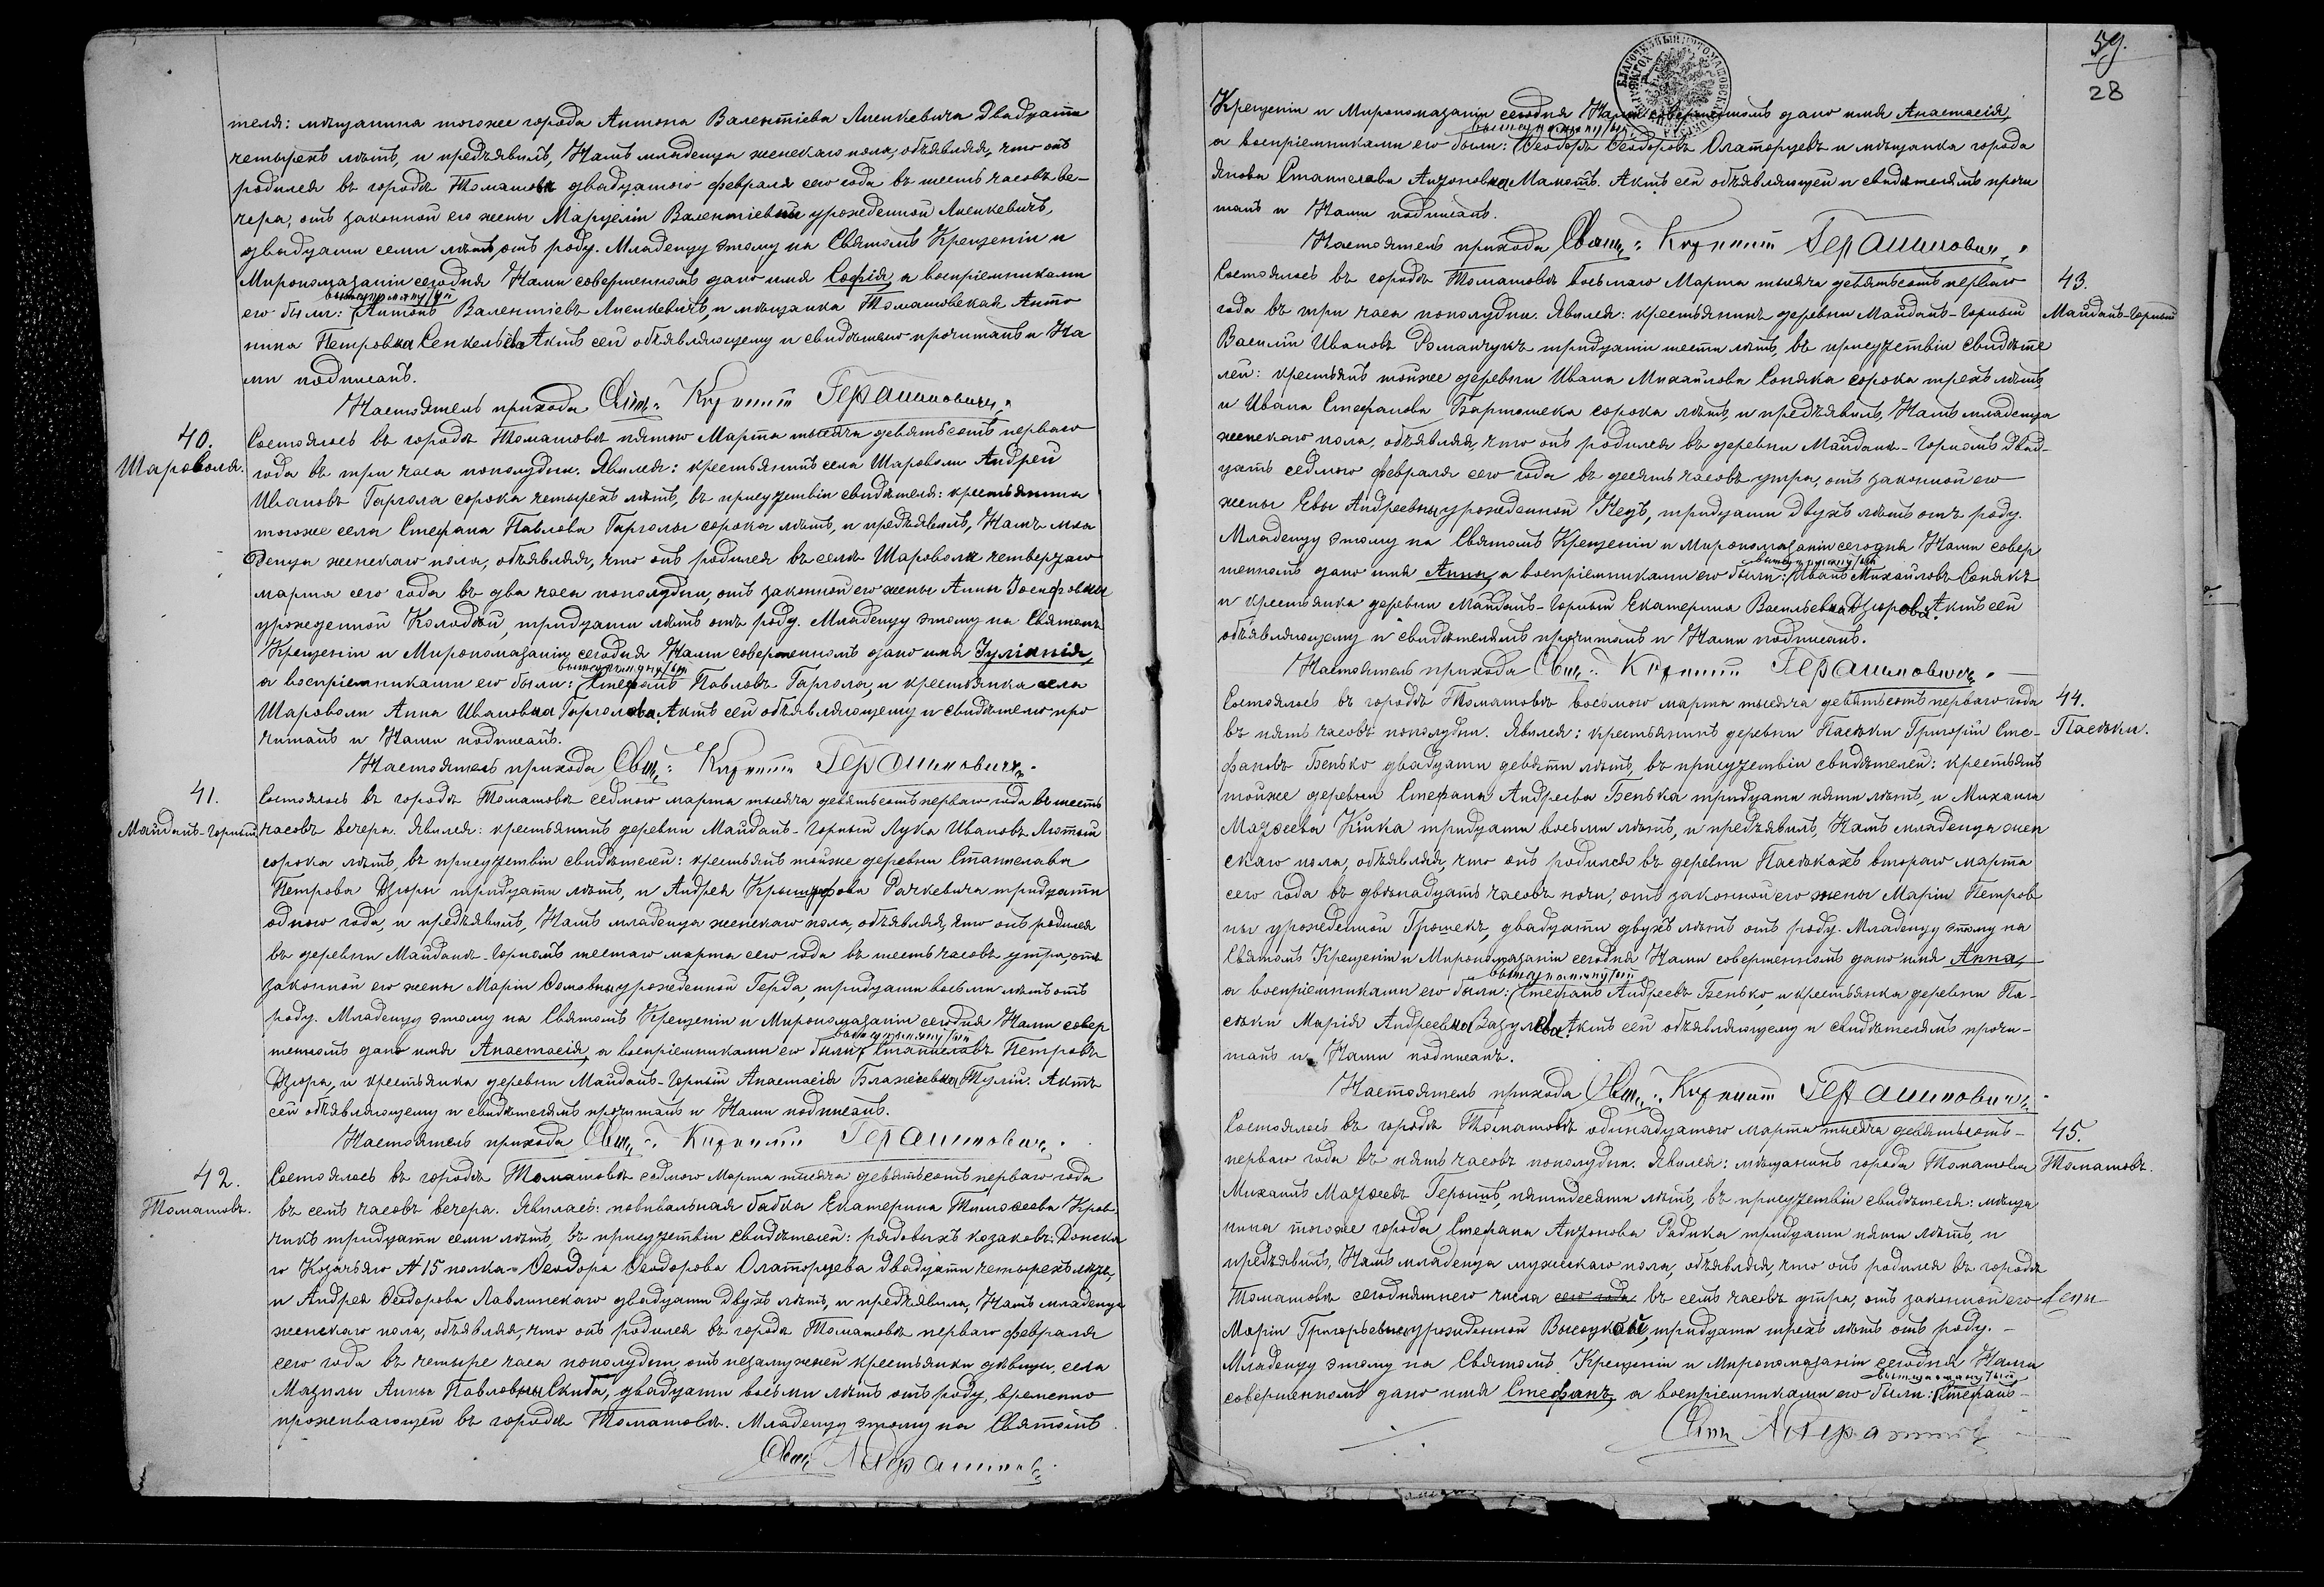 теля: мѣщанина тогоже города Антона Валентіева Линкевича двадцати
четырехъ лѣтъ, и предъявилъ, Намъ младенца женскаго пола, объявляя, что онъ
родился въ городѣ Томашовѣ двадцатого февраля сего года въ шесть часовъ ве-
чера, отъ законной его жены Марцеліи Валентіевны урожденной Линкевичъ,
двадцати семи лѣтъ отъ роду. Младенцу этому на Святомъ Крещеніи и
Миропомазаніи сегодня Нами совершенномъ дано имя Софія, а воспріемниками
вышеупомянутый
его были: Антонъ Валентіевъ Линкевичъ, и мѣщанка Томашовская Анто
нина Петровна Сенкельева. Актъ сей объявляющему и свидѣтелю прочитанъ и На
ми подписанъ.
Настоятель прихода Свящ: Корнилій Герашиновичъ.
40.
Шароволя.
Состоялось въ городѣ Томашовѣ пятого Марта тысяча девятьсотъ перваго
года въ три часа пополудни. Явился: крестьянинъ села Шароволи Андрей
Ивановъ Гаргола сорока четырехъ лѣтъ, въ присутствіи свидѣтеля: крестьянина
тогоже села Стефана Павлова Гарголы сорока лѣтъ, и предъявилъ, Намъ мла
денца женскаго пола, объявляя, что онъ родился въ селѣ Шароволѣ четвертаго
марта сего года въ два часа пополудни, отъ законной его жены Анны Іосифовны
урожденной Колодзѣй, тридцати лѣтъ отъ роду. Младенцу этому на Святомъ
Крещеніи и Миропомазаніи сегодня Нами совершенномъ дано имя Іуліанія,
вышеупомянутый
а воспріемниками его были: Стефанъ Павловъ Гаргола, и крестьянка села
Шароволи Анна Ивановна Гарголова. Актъ сей объявляющему и свидѣтелю про
читанъ и Нами подписанъ.
Настоятель прихода Свящ: Корнилій Герашиновичъ.
41.
Майданъ-Горный
Состоялось въ городѣ Томашовѣ седмого марта тысяча девятьсотъ перваго года въ шесть
часовъ вечера. Явился: крестьянинъ деревни Майданъ-Горный Лука Ивановъ Лютый
сорока лѣтъ, въ присутствіи свидѣтелей: крестьянъ тойже деревни Станислава
Петрова Дзюры тридцати лѣтъ, и Андрея Крыштофова Рачкевича тридцати
одного года, и предъявилъ, Намъ младенца женскаго пола, объявляя, что онъ родился
въ деревни Майданъ-Горномъ шестаго марта сего года въ шесть часовъ утра, отъ
законной его жены Маріи Томовны урожденной Герда, тридцати восьми лѣтъ отъ
роду. Младенцу этому на Святомъ Крещеніи и Миропомазаніи сегодня Нами совер
вышеупомянутый
шенномъ дано имя Анастасія, а воспріемниками его были: Станиславъ Петровъ
Дзюра, и крестьянка деревни Майданъ-Горный Анастасія Блажеевна Тулій. Актъ
сей объявляющему и свидѣтелямъ прочитанъ и Нами подписанъ.
Настоятель прихода Свящ: Корнилій Герашиновичъ.
42.
Томашовъ.
Состоялось въ городѣ Томашовѣ седмого Марта тысяча девятьсотъ перваго года
въ семь часовъ вечера. Явилась: повивальная бабка Екатерина Тимоѳеева Крав
чикъ тридцати семи лѣтъ, въ присутствіи свидѣтелей: рядовыхъ козаковъ: Донска
го Козачьяго № 15 полка Ѳеодора Ѳеодорова Олаторцева двадцати четырехъ лѣтъ,
и Андрея Ѳеодорова Лавлинскаго двадцати двухъ лѣтъ, и предъявила, Намъ младенца
женскаго пола, объявляя, что онъ родился въ городѣ Томашовѣ перваго февраля
сего года въ четыре часа пополудни, отъ незамужней крестьянки дѣвицы, села
Мазилы Анны Павловны Скиба, двадцати восьми лѣтъ отъ роду, временно
проживающей въ городѣ Томашовѣ. Младенцу этому на Святомъ
Свящ
59.
28
Крещеніи и Миропомазаніи сегодня Нами совершенномъ дано имя Анастасія,
вышеупомянутый
а воспріемниками его были: Ѳеодоръ Ѳеодоровъ Олаторцевъ и мѣщанка города
Янова Станислава Антоновна Мамотъ. Актъ сей объявляющей и свидѣтелямъ прочи
танъ и Нами подписанъ.
Настоятель прихода Свящ: Корнилій Герашиновичъ.
43.
Майданъ-Горный
Состоялось въ городѣ Томашовѣ восьмаго Марта тысяча девятьсотъ перваго
года въ три часа пополудни. Явился: крестьянинъ деревни Майданъ-Горный
Василій Ивановъ Романчукъ тридцати шести лѣтъ, въ присутствіи свидѣте
лей: крестьянъ тойже деревни Ивана Михайлова Соняка сорока трехъ лѣтъ
и Ивана Стефанова Бартошека сорока лѣтъ, и предъявилъ, Намъ младенца
женскаго пола, объявляя, что онъ родился въ деревни Майданъ-Горномъ двад-
цать седмого февраля сего года въ десять часовъ утра, отъ законной его
жены Евы Андреевны урожденной Кецъ, тридцати двухъ лѣтъ отъ роду.
Младенцу этому на Святомъ Крещеніи и Миропомазаніи сегодня Нами совер
вышеупомянутый
шенномъ дано имя Анна, а воспріемниками его были: Иванъ Михайловъ Сонякъ
и крестьянка деревни Майданъ-Горный Екатерина Васильевна Дзюрова. Актъ сей
объявляющему и свидѣтелямъ прочитанъ и Нами подписанъ.
Настоятель прихода Свящ: Корнилій Герашиновичъ.
44.
Пасѣки.
Состоялось въ городѣ Томашовѣ восьмого марта тысяча девятьсотъ перваго года
въ пять часовъ пополудни. Явился: крестьянинъ деревни Пасѣки Григорій Сте-
фановъ Бенько двадцати девяти лѣтъ, въ присутствіи свидѣтелей: крестьянъ
тойже деревни Стефана Андреева Бенька тридцати пяти лѣтъ, и Михаила
Матѳеева Кіика тридцати восьми лѣтъ, и предъявилъ, Намъ младенца жен
скаго пола, объявляя, что онъ родился въ деревни Пасѣкахъ втораго марта
сего года въ двѣнадцать часовъ ночи, отъ законной его жены Маріи Петров
ны урожденной Грошекъ, двадцати двухъ лѣтъ отъ роду. Младенцу этому на
Святомъ Крещеніи и Миропомазаніи сегодня Нами совершенномъ дано имя Анна,
вышеупомянутый
а воспріемниками его были: Стефанъ Андреевъ Бенько, и крестьянка деревни Па-
сѣки Марія Андреевна Вазулева. Актъ сей объявляющему и свидѣтелямъ прочи-
танъ и Нами подписанъ.
Настоятель прихода Свящ: Корнилій Герашиновичъ.
45.
Томашовъ.
Состоялось въ городѣ Томашовѣ одинадцатого марта тысяча девятьсотъ
перваго года въ пять часовъ пополудни. Явился: мѣщанинъ города Томашова
Михаилъ Матѳеевъ Герычъ, пятидесяти лѣтъ, въ присутствіи свидѣтеля: мѣща
нина тогоже города Стефана Антонова Радика тридцати пяти лѣтъ, и
предъявилъ, Намъ младенца мужескаго пола, объявляя, что онъ родился въ городѣ
Томашовѣ сегодняшнего числа сего года въ семь часовъ утра, отъ законной его жены
Маріи Григорьевны урожденной Высоцкой, тридцати трехъ лѣтъ отъ роду.
Младенцу этому на Святомъ Крещеніи и Миропомазаніи сегодня Нами
вышеупомянутый
совершенномъ дано имя Стефанъ, а воспріемниками его были: Стефанъ
Свящ